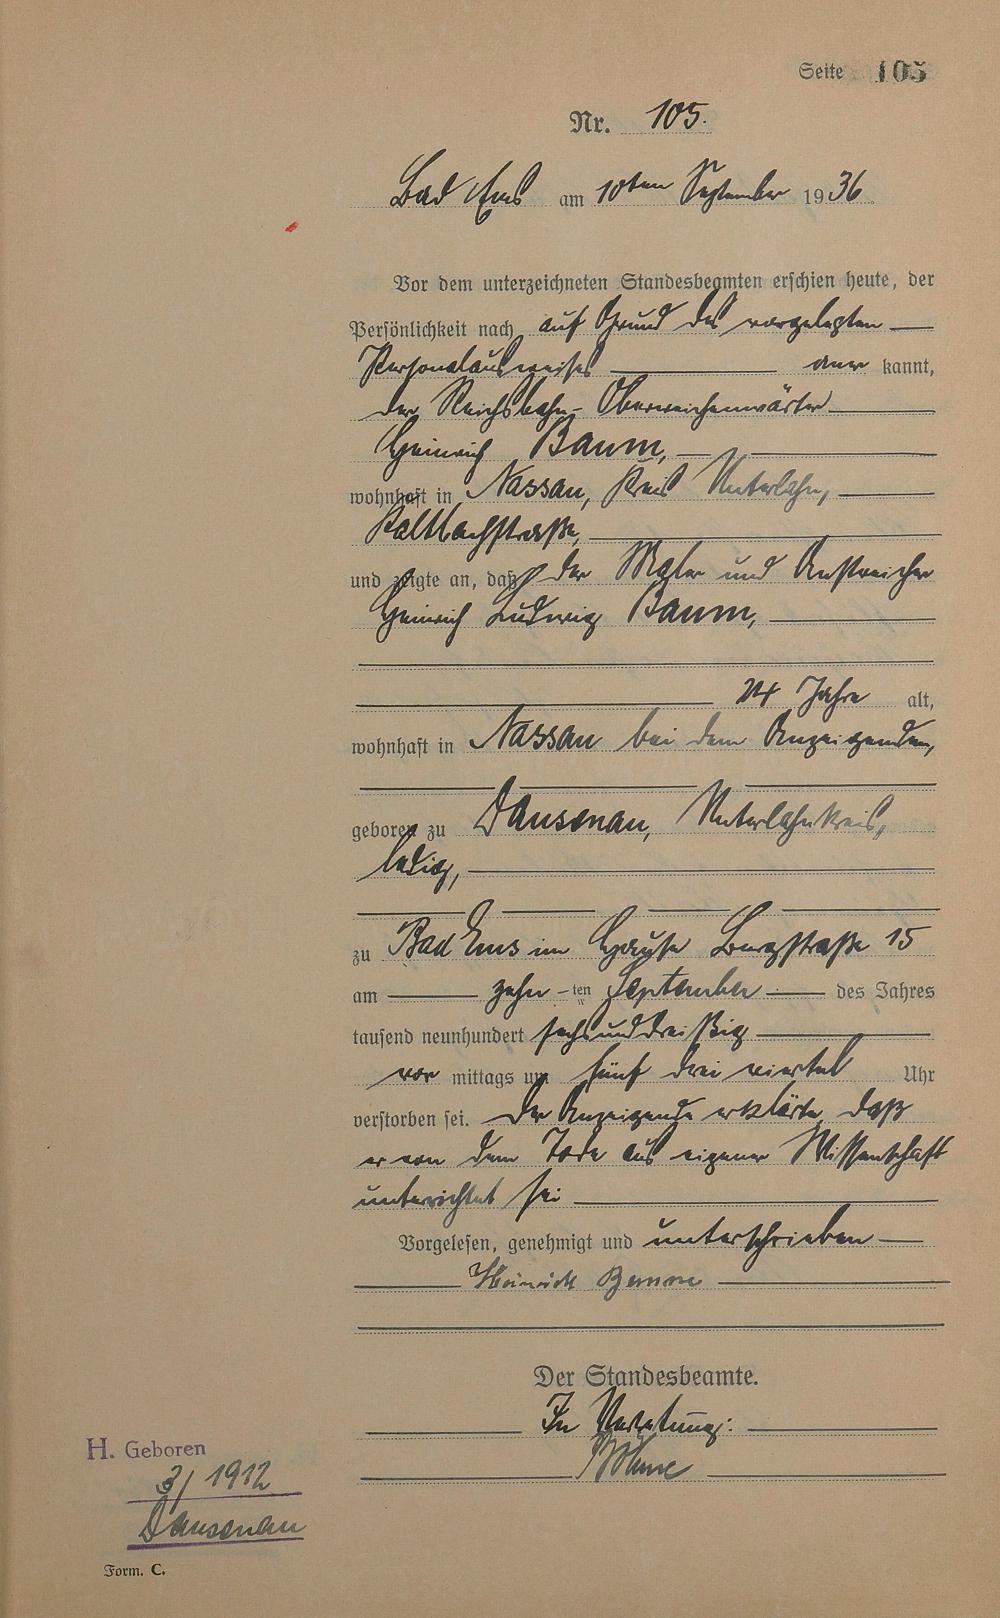 Seite 105
Nr. 105.
Bad Ems am 10ten September 1936
Vor dem unterzeichneten Standesbeamten erschien heute, der
Persönlichkeit nach auf Grund des vorgelegten
Personalausweises aner kannt,
der Reichsbahn-Oberweichenwärter
Heinrich Baum,
wohnhaft in Nassau, Kreis Unterlahn,
Kaltbachstraße,
und zeigte an, daß der Maler und Anstreicher
Heinrich Ludwig Baum,
24 Jahre alt,
wohnhaft in Nassau bei dem Anzeigenden,
geboren zu Dausenau, Unterlahnkreis,
ledig,
zu Bad Ems im Hause Burgstraße 15
am zehn-ten September des Jahres
tausend neunhundert sechsunddreißig
vor mittags um fünf drei viertel Uhr
verstorben sei. Der Anzeigende erklärte, daß
er von dem Tode aus eigener Wissenschaft
unterrichtet sei
Vorgelesen, genehmigt und unterschrieben
Heinrich Baum
Der Standesbeamte.
In Vertretung:
H. Geboren
3/1912
Dausenau
Form. C.